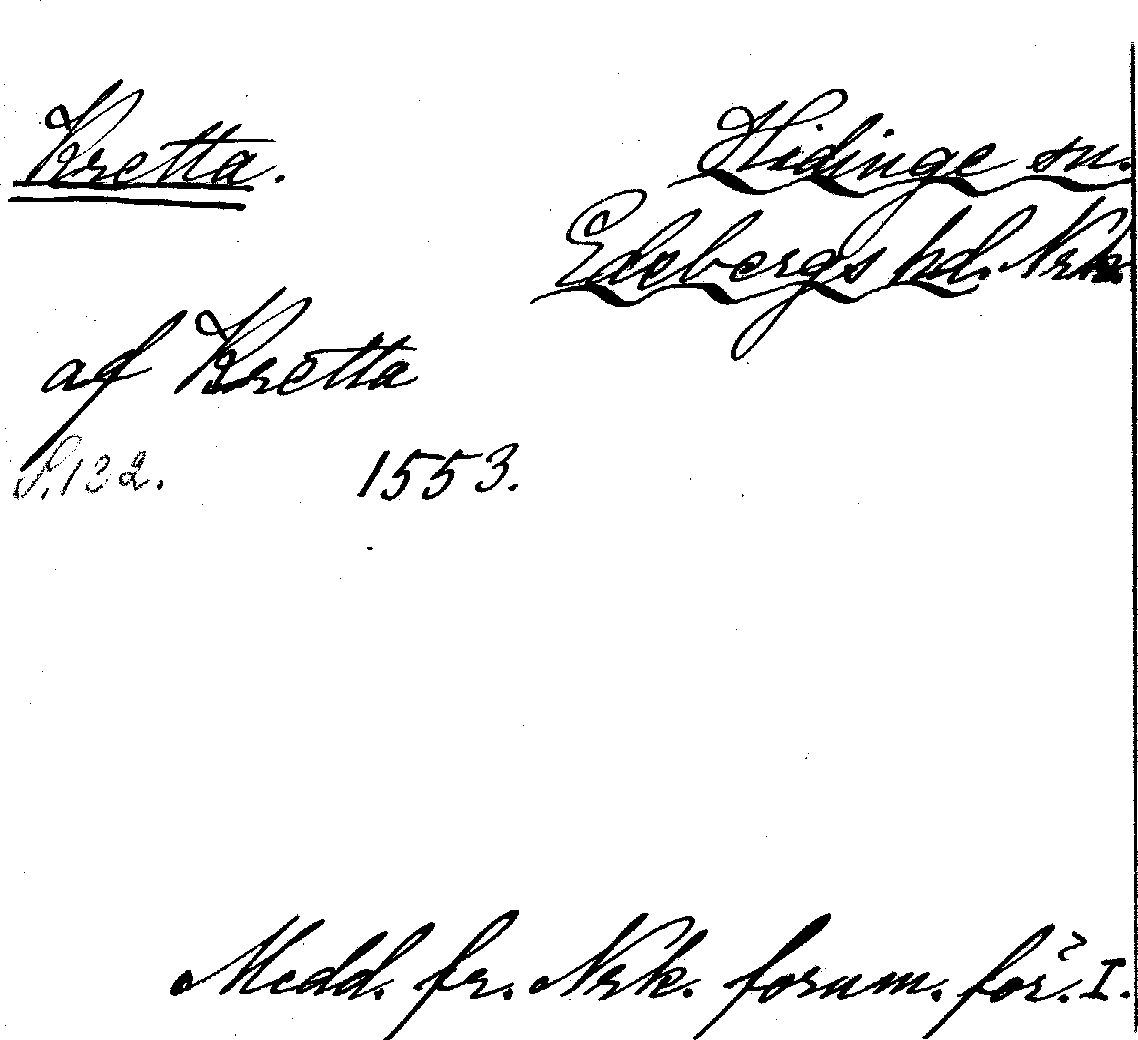 Kretta.
Hidinge sn.
Edebergs hd. Nrk.
af Kretta
S. 132. 1553.
Medd. fr. Nrk. fornm. för. I.